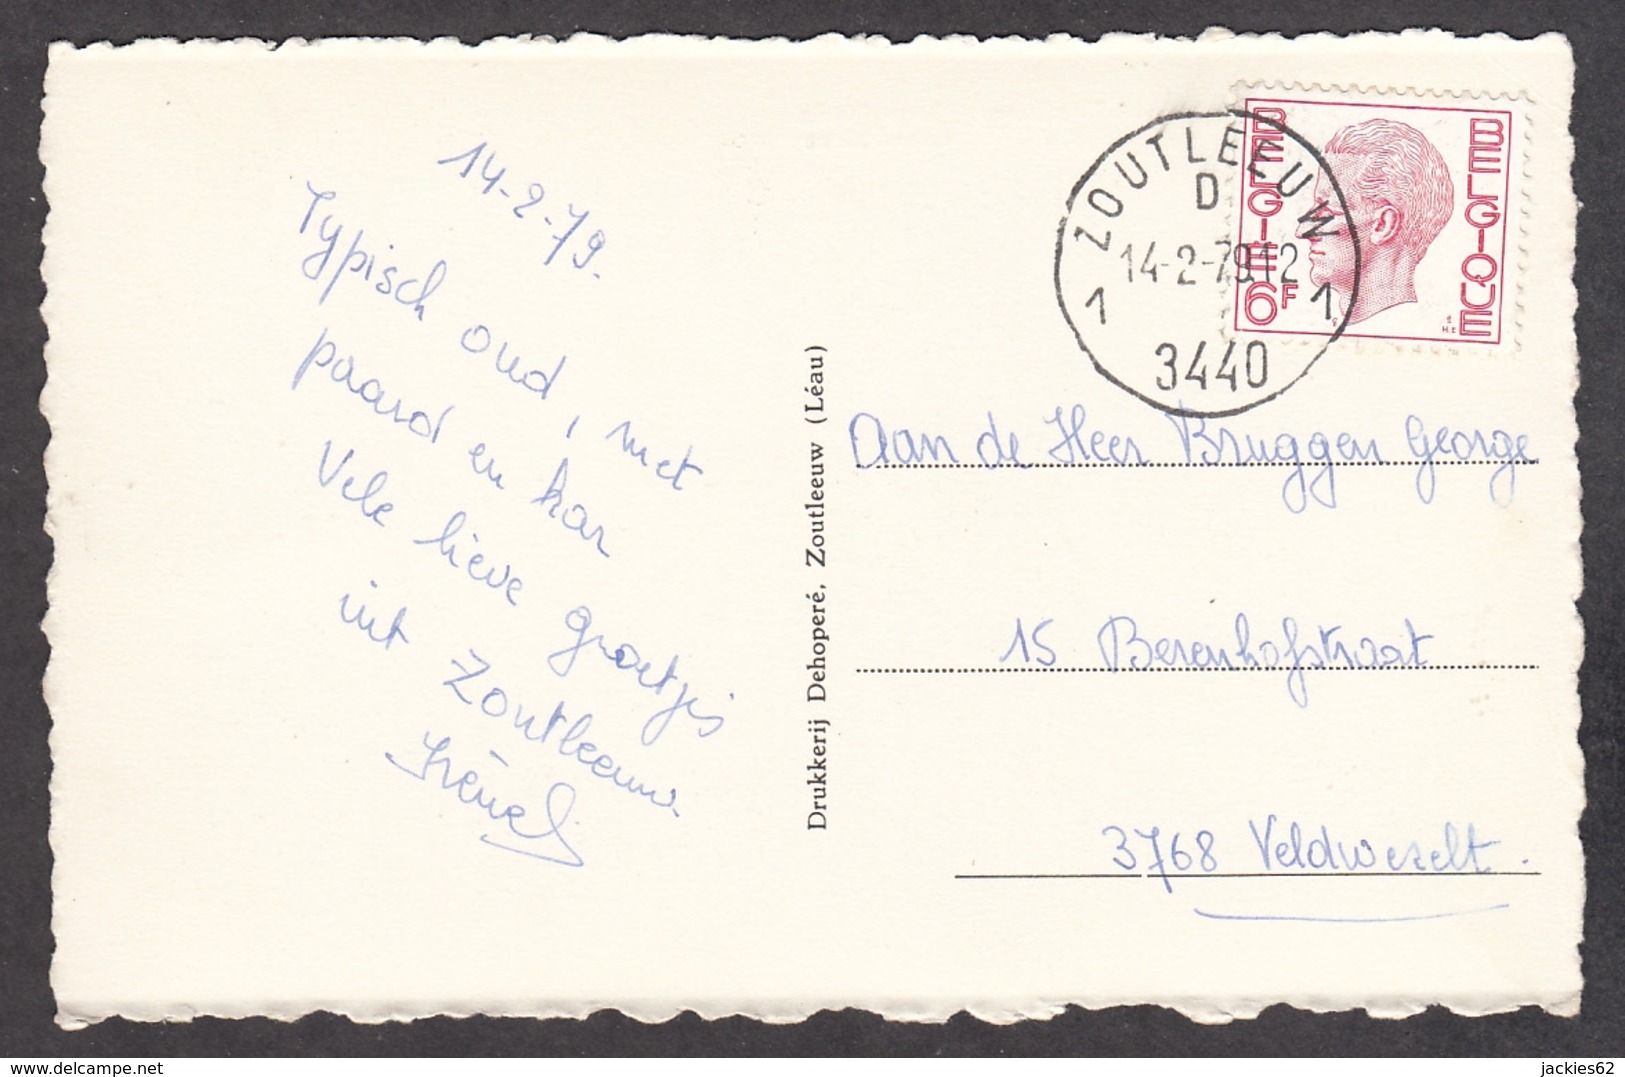 14-2-79.
Typisch oud, met
paard en kar
Vele lieve groetjes
uit Zoutleeuw
Drukkerij Dehoperé, Zoutleeuw (Léau)
ZOUTLEEUW
D
14-2-79.12
1 1
3440
BELGIE 6F
BELGIQUE
Aan de Heer Bruggen George
15 Berenhofstraat
3768 Veldwezelt.
delcampe.net
jackies62